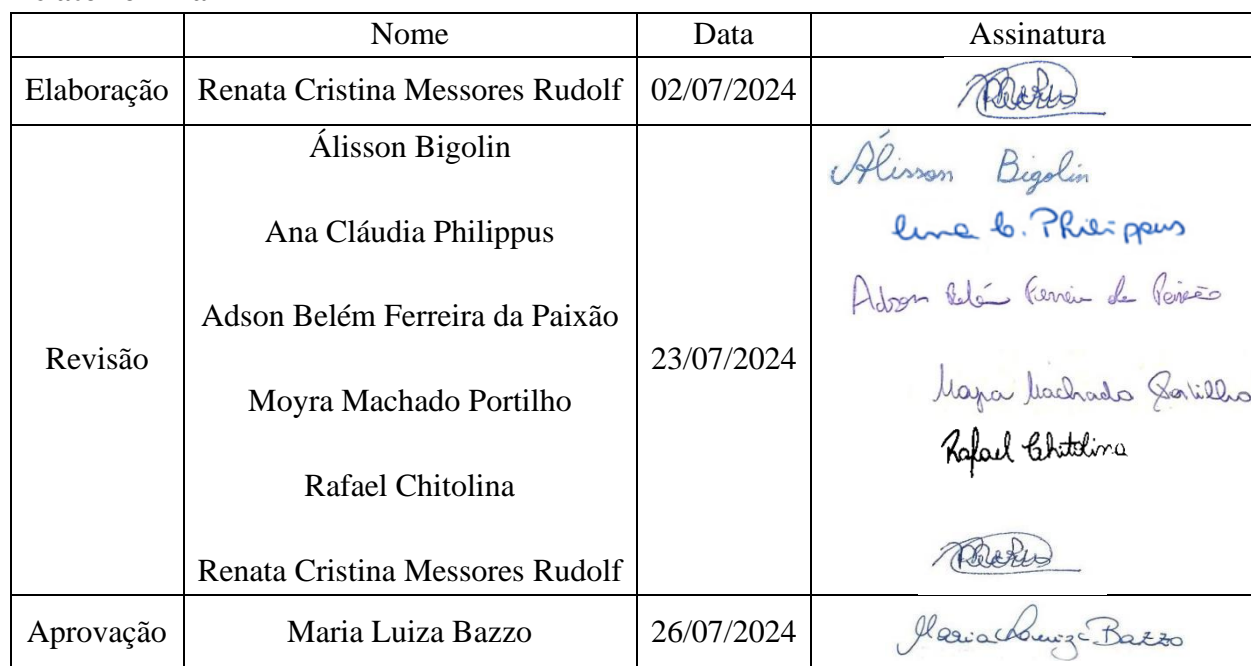 Nome Data Assinatura
Elaboração Renata Cristina Messores Rudolf 02/07/2024
Revisão
Álisson Bigolin
Ana Cláudia Philippus
Adson Belém Ferreira da Paixão
Moyra Machado Portilho
Rafael Chitolina
Renata Cristina Messores Rudolf
23/07/2024
Álisson Bigolin
Ana C. Philippus
Adson Belém Ferreira da Paixão
Moyra Machado Portilho
Rafael Chitolina
Aprovação Maria Luiza Bazzo 26/07/2024 Maria Luiza Bazzo